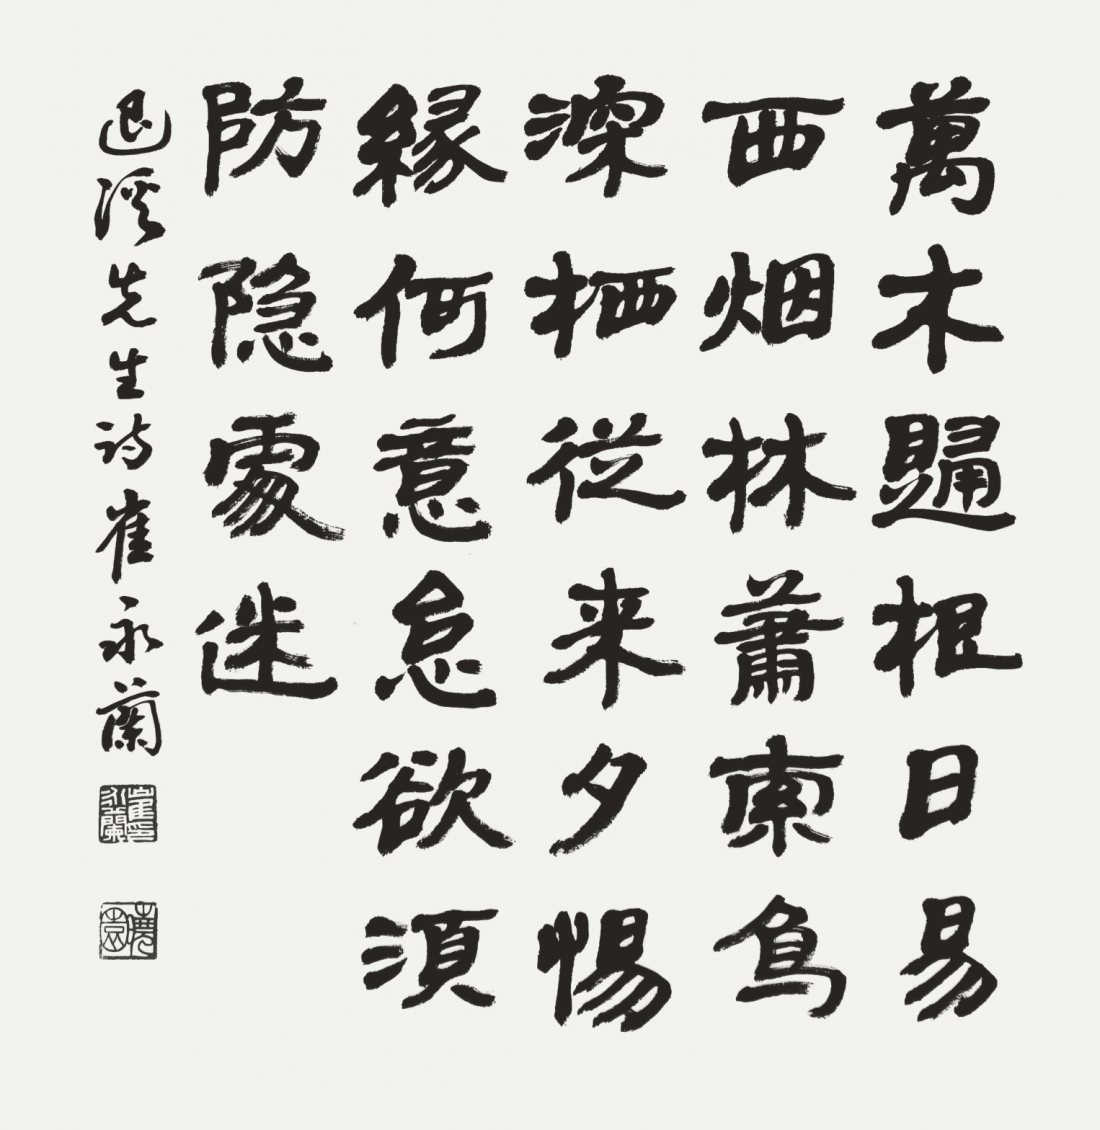 萬木歸根日易
西烟林蕭索鳥
深栖從来夕惕
緣何意怠欲須
防隐處迷
退溪先生诗崔永蘭